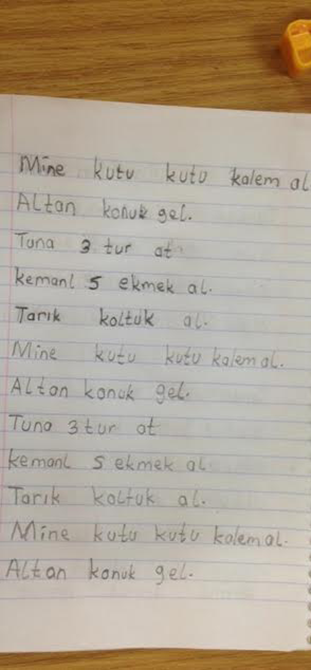 Mine kutu kutu kalem al
Altan konuk gel.
Tuna 3 tur at
kemanl 5 ekmek al.
Tarık koltuk al.
Mine kutu kutu kalem al.
Altan konuk gel.
Tuna 3 tur at
kemanl 5 ekmek al
Tarık koltuk al.
Mine kutu kutu kalem al.
Altan konuk gel.